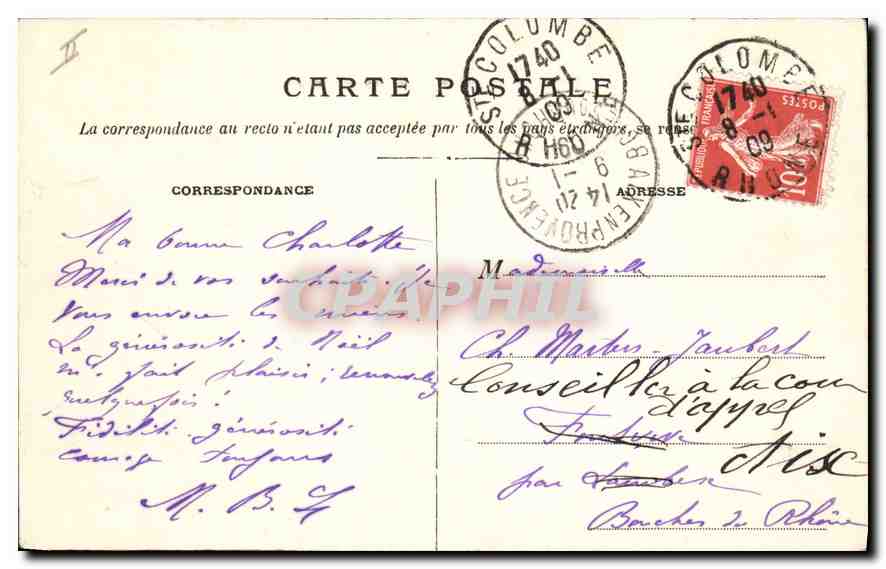 II
CARTE POSTALE
La correspondance au recto n'étant pas acceptée par tous les pays étrangers, se rens
CORRESPONDANCE
ADRESSE
STE COLOMBE
17 40
8 -1
09
RHONE
STE COLOMBE
17 40
8 -1
09
RHONE
AIX EN PROVENCE
14 20
9 -1
09
POSTES
RÉPUBLIQUE FRANÇAISE
10
Ma bonne Charlotte
Merci de vos souhaits. Je
vous envoie les miens.
La générosité de Noël
m'a fait plaisir ; renouvelez
quelquefois !
Fidélité générosité
courage toujours
M. B.
Mademoiselle
Ch. Martus-Jaubert
Conseiller à la cour
d'appel
par Lambesc
Aix
Bouches du Rhône
CPAPHIL